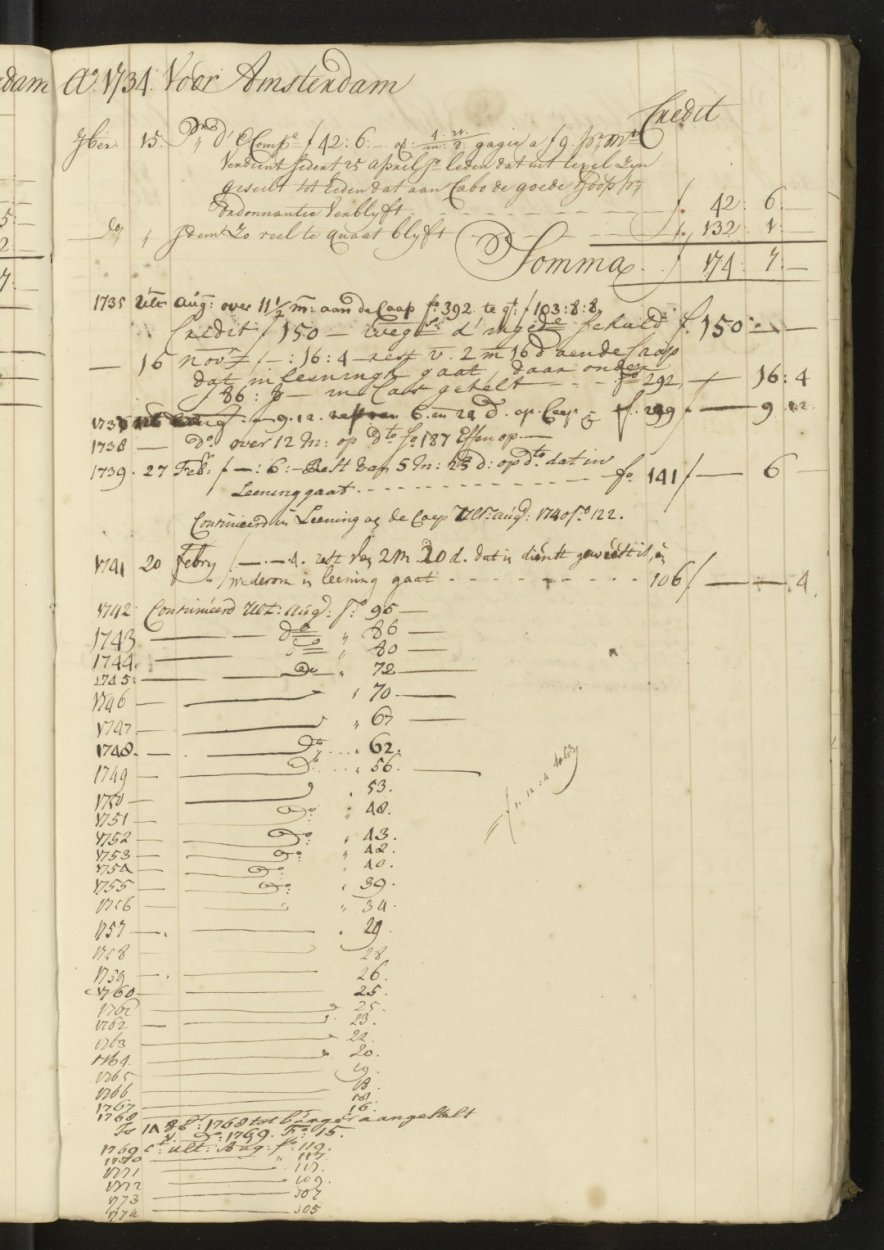 dam
Ao. 1734. Voor Amsterdam
Credit
7ber 15. Pr. d' E Compe ƒ 42: 6: — gagie a ƒ 9 pr. mt.
Verdient sedert 25 april Jo. leden dat uit texel Zyn
geseilt tot heden dat aan Cabo de goede Hoop pr.
Ordonnantie Verblyft - - - ƒ. 42: 6: —
Do. „ Idem Zo veel te quaat blyft - - - ƒ. 132: 1: —
Somma. ƒ 174: 7: —
1735 Ulto. Aug: over 11 1/2 m: aan de Caap fo. 392 te qt: ƒ 103: 8: 8
Credit ƒ 150 — wegs. ƒ. 150: — —
— 16 novr. ƒ — : 16: 4 — rest v. 2 m 16 d aen de Caap
dat in leeninge gaat, daar onder
86: 8 — in Cas getelt - - - fo. 292 — 16: 4
9. 12. rest van 6. m 22 d. op Caap ƒ. 299 ƒ — 9. 12.
1738 — Do. over 12 m: op Dto. fo. 187 Effen op. —
1739. 27 Febr: ƒ — : 6: — Rest van 5 m: 25 d: op dto. dat in
Leening gaat - - - fo. 141 ƒ — 6 —
Continueerd in Leening aan de Caap Ulto. aug: 1740 fo. 122.
1741 20 Febry ƒ — . — 4. rest van 2 m. 20 d. dat in dienst geweest is, en
wederom in leening gaat - - - 106 ƒ — — 4.
1742 Continueerd Ult: Aug: fo. 96 —
1743 — Do. „ 86 —
1744. — Do. „ 80 —
1745. — Do. „ 72 —
1746 — „ 70 —
1747 — „ 67 —
1748. — Do. „ 62.
1749 — Do. „ 56. —
1750 — „ 53.
1751 — Do. „ 48.
1752 — Do. „ 43.
1753 — Do. „ 42.
1754 — Do. „ 40.
1755 — Do. „ 39.
1756 — „ „ 34.
1757 — . 29.
1758 — 28.
1759 — . 26.
1760 — 25.
1761 — 25.
1762 — 23.
1763 — 22.
1764 — 20.
1765 — 19.
1766 — 18.
1767 — 18.
1768 — 16.
Is 1768 tot burger aangestelt
Do. 1769. Fo. 15.
1769 Co. ult: Aug: fo. 119.
1770 — „ 117.
1771 — 117.
1772 — 109.
1773 — 107
1774 — 105